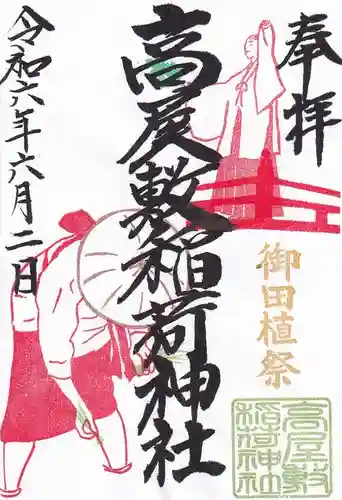 奉拝
御田植祭
高屋敷稲荷神社
高屋敷
稲荷神社
令和六年六月二日